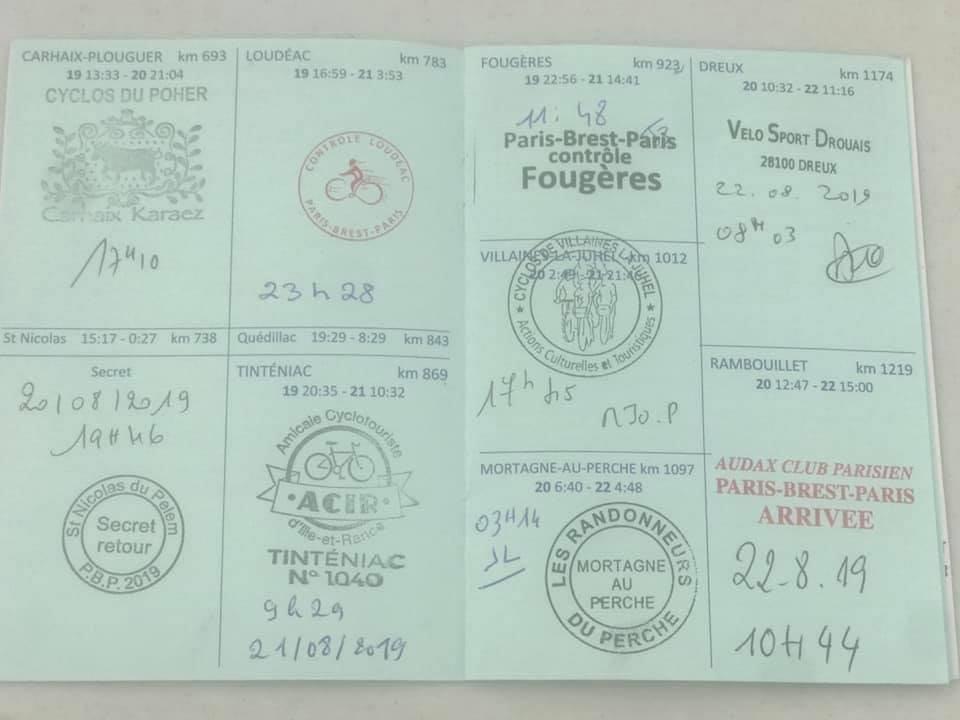 CARHAIX-PLOUGUER km 693
19 13:33 - 20 21:04
CYCLOS DU POHER
Carhaix Karaez
17H10
LOUDÉAC km 783
19 16:59 - 21 3:53
CONTROLE LOUDEAC
PARIS-BREST-PARIS
23 h 28
St Nicolas 15:17 - 0:27 km 738
Quédillac 19:29 - 8:29 km 843
Secret
20/08/2019
19H46
St Nicolas du Pelem
Secret
retour
P.B.P. 2019
TINTÉNIAC km 869
19 20:35 - 21 10:32
Amicale Cyclotouriste
ACIR
d'Ille-et-Rance
TINTÉNIAC
N° 1040
9h29
21/08/2019
FOUGÈRES km 923
19 22:56 - 21 14:41
11:48
Paris-Brest-Paris
contrôle
Fougères
VILLAINES-LA-JUHEL km 1012
20 2:49 - 21 21:46
CYCLOS DE VILLAINES LA JUHEL
Actions Culturelles et Touristiques
17h
MORTAGNE-AU-PERCHE km 1097
20 6:40 - 22 4:48
03H14
JL
LES RANDONNEURS
MORTAGNE
AU
PERCHE
DU PERCHE
DREUX km 1174
20 10:32 - 22 11:16
VELO SPORT DROUAIS
28100 DREUX
22.08.2019
08H03
RAMBOUILLET km 1219
20 12:47 - 22 15:00
AUDAX CLUB PARISIEN
PARIS-BREST-PARIS
ARRIVEE
22-8.19
10H44